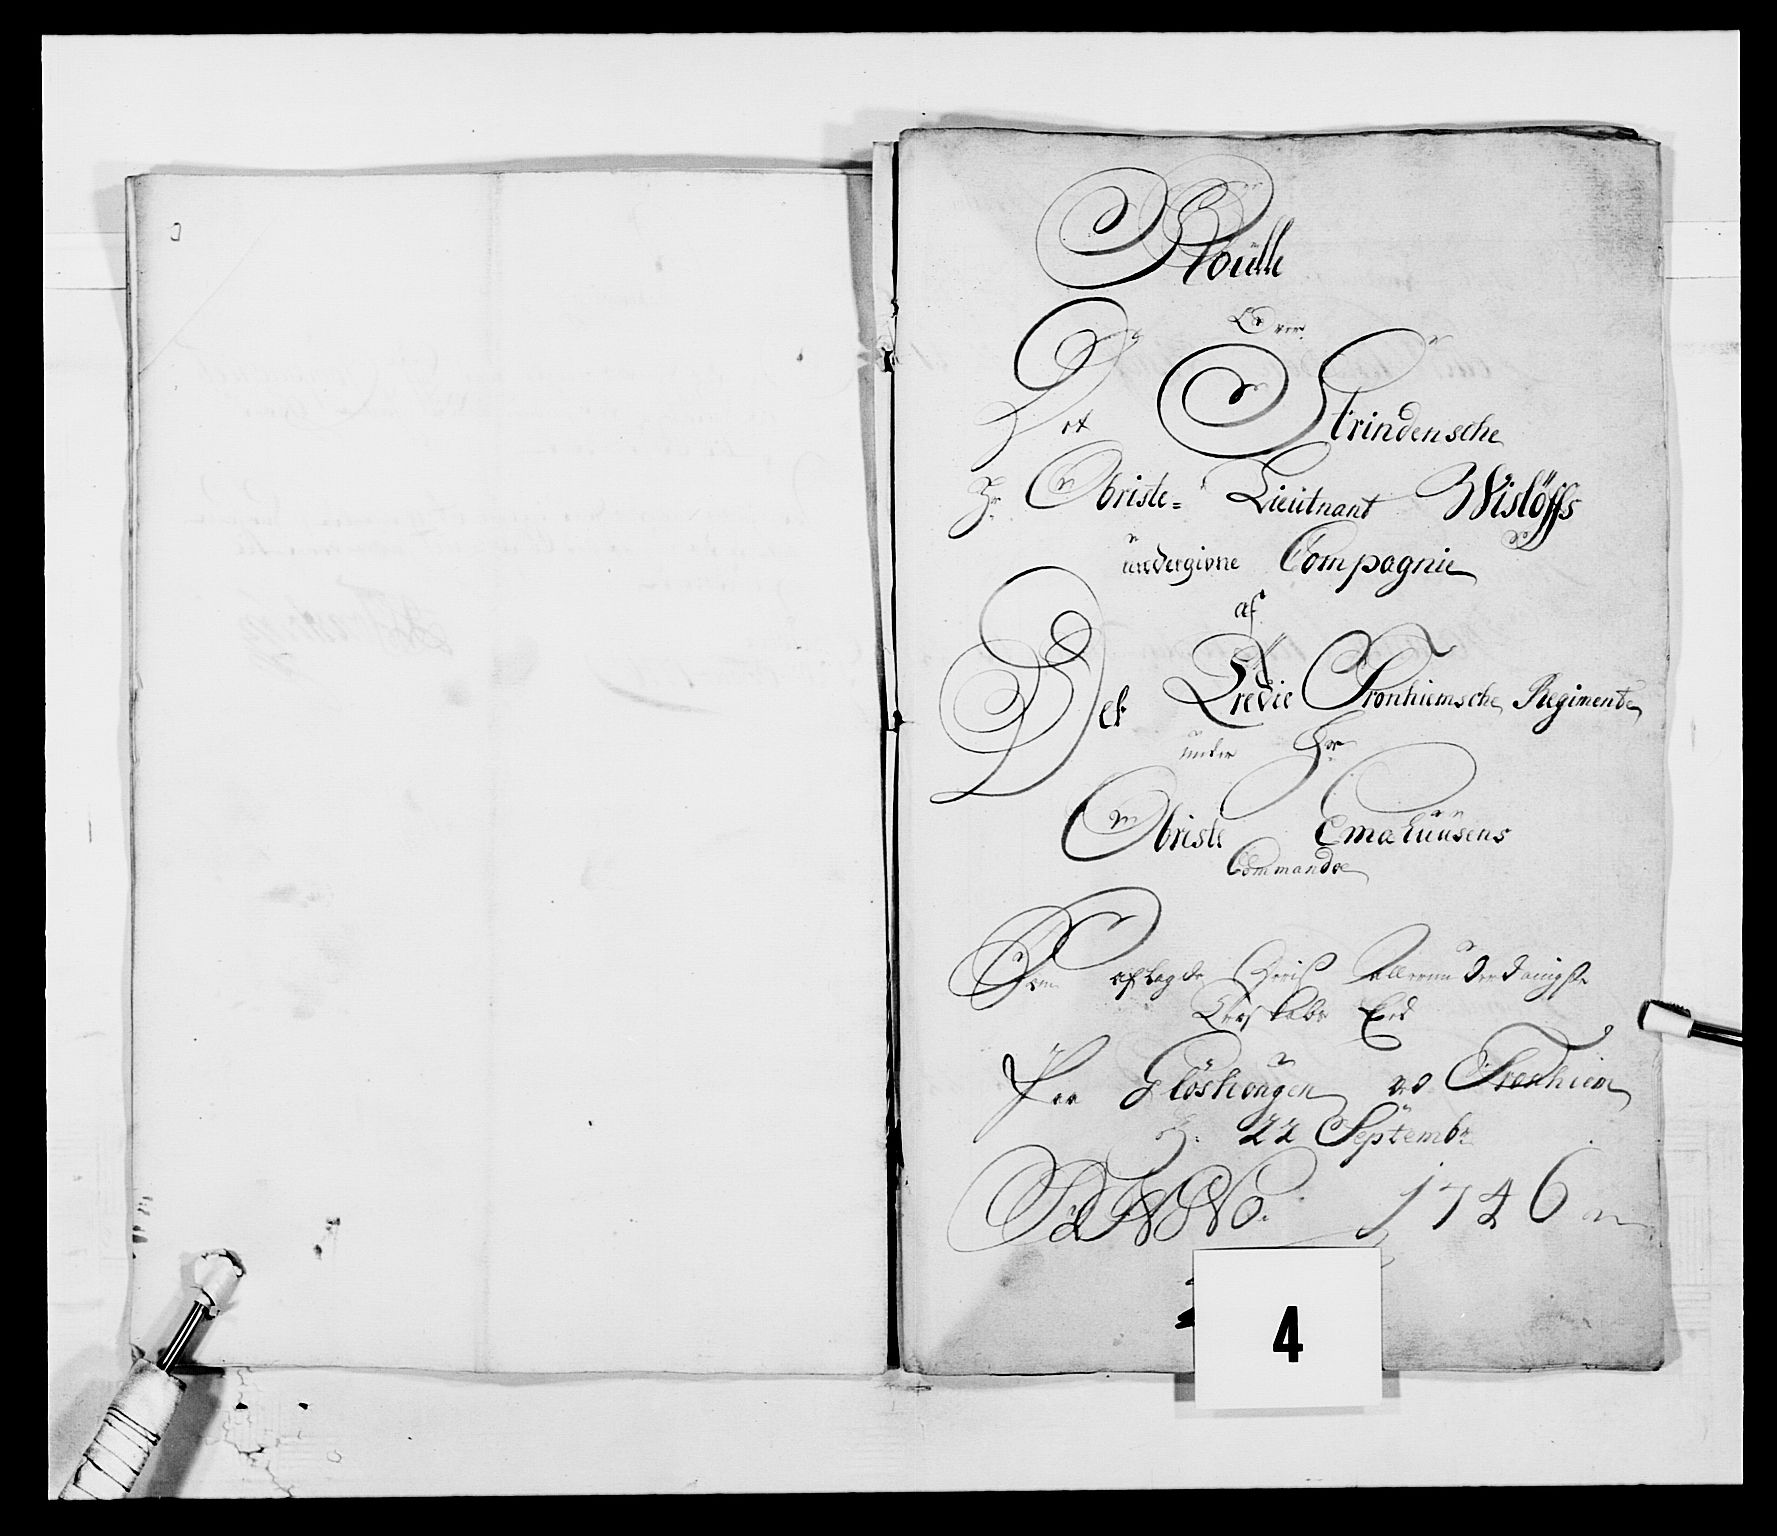 Roulle
Over
Det Strindensche
Hr Obriste= Lieütnant Wislöffs
undergivne Compagnie
af
Det Tredie Tronhiemsche Regimente
under Hr
Obriste Emahuusens
Commandoe
Som aflagde Hereis Allerunderdanigste
Troskabs Eed
Paa Flöskougen ved Tronhiem
d. 22 Septembr
1746
4